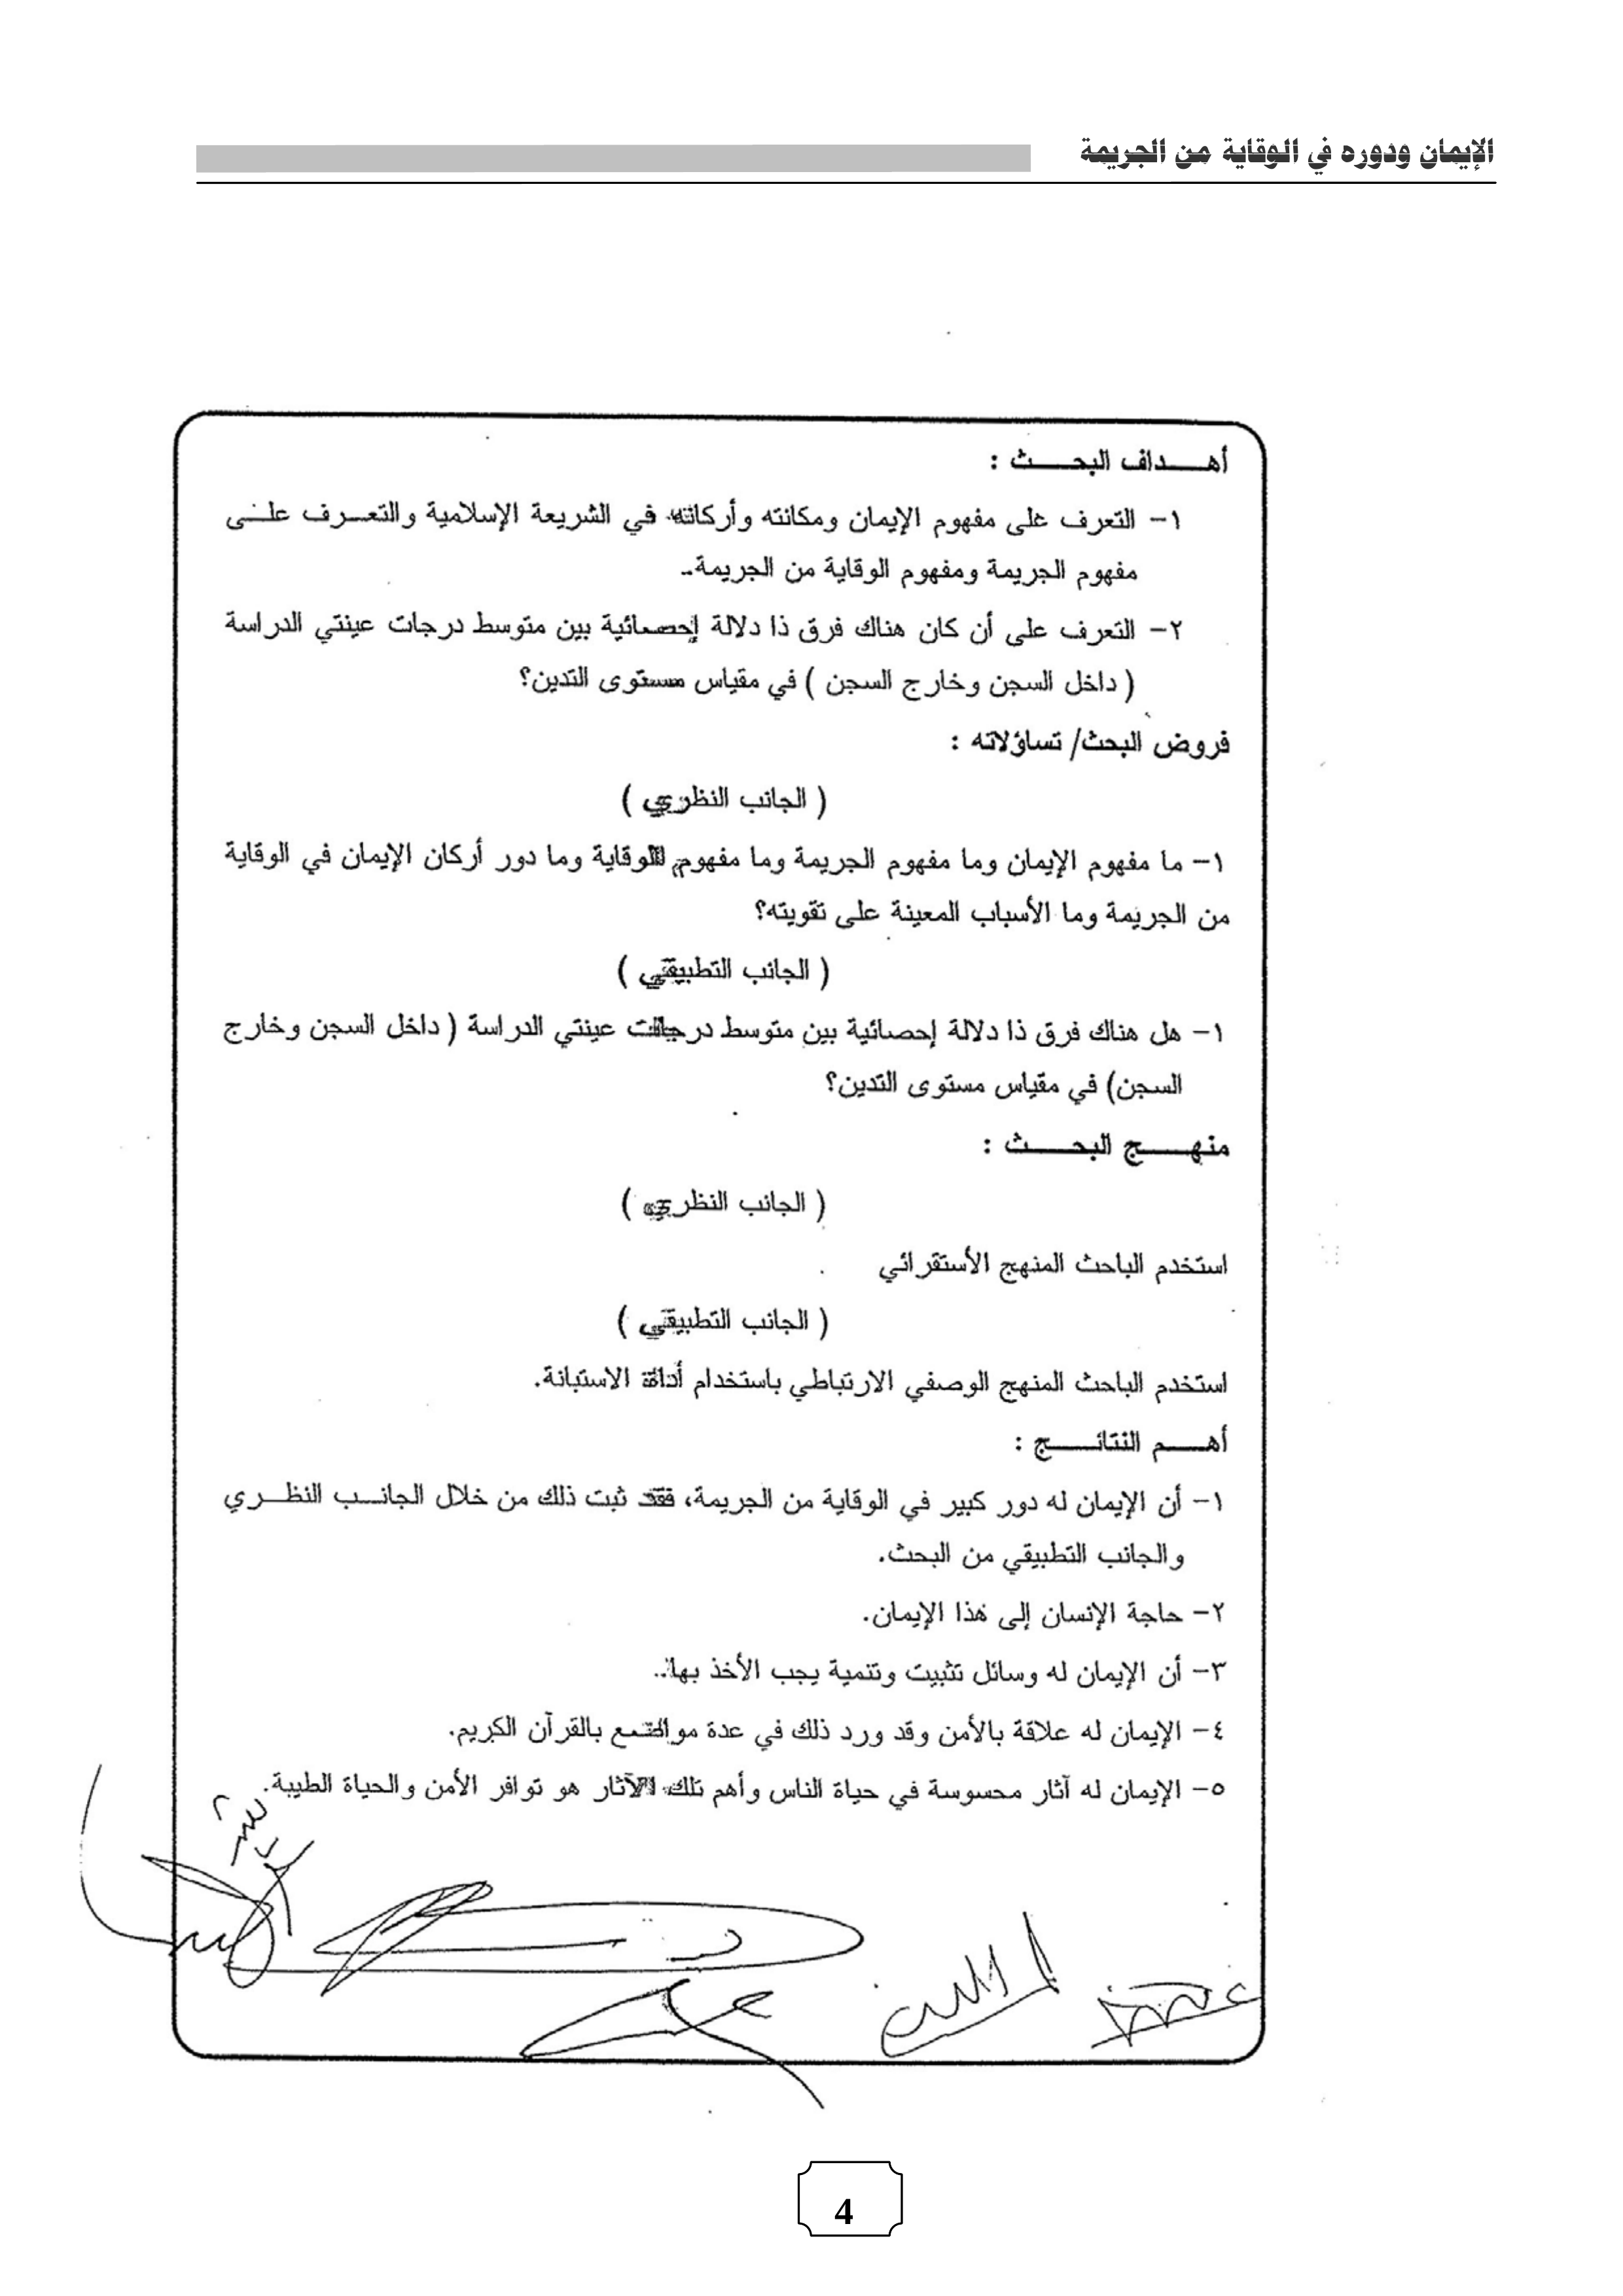 الإيمان ودوره في الوقاية من الجريمة
أهـــداف البحـــث :
١- التعرف على مفهوم الإيمان ومكانته وأركانه في الشريعة الإسلامية والتعـرف علـى
مفهوم الجريمة ومفهوم الوقاية من الجريمة.
٢- التعرف على أن كان هناك فرق ذا دلالة إحصائية بين متوسط درجات عينتي الدراسة
( داخل السجن وخارج السجن ) في مقياس مستوى التدين؟
فروض البحث/ تساؤلاته :
( الجانب النظري )
١- ما مفهوم الإيمان وما مفهوم الجريمة وما مفهوم الوقاية وما دور أركان الإيمان في الوقاية
من الجريمة وما الأسباب المعينة على تقويته؟
( الجانب التطبيقي )
١- هل هناك فرق ذا دلالة إحصائية بين متوسط درجات عينتي الدراسة ( داخل السجن وخارج
السجن) في مقياس مستوى التدين؟
منهـــج البحـــث :
( الجانب النظري )
استخدم الباحث المنهج الأستقرائي .
( الجانب التطبيقي )
استخدم الباحث المنهج الوصفي الارتباطي باستخدام أداة الاستبانة.
أهـــم النتائـــج :
١- أن الإيمان له دور كبير في الوقاية من الجريمة، فقد ثبت ذلك من خلال الجانـب النظـري
والجانب التطبيقي من البحث.
٢- حاجة الإنسان إلى هذا الإيمان.
٣- أن الإيمان له وسائل تثبيت وتنمية يجب الأخذ بها.
٤- الإيمان له علاقة بالأمن وقد ورد ذلك في عدة مواضع بالقرآن الكريم.
٥- الإيمان له آثار محسوسة في حياة الناس وأهم تلك الآثار هو توافر الأمن والحياة الطيبة.
4